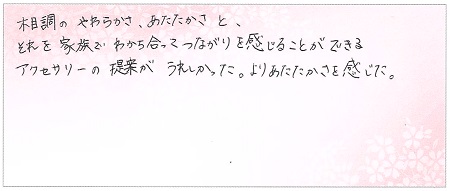 木目調の やわらかさ、あたたかさ と、
それを 家族で わかち合って つながりを感じることが できる
アクセサリーの 提案が うれしかった。よりあたたかさを感じた。